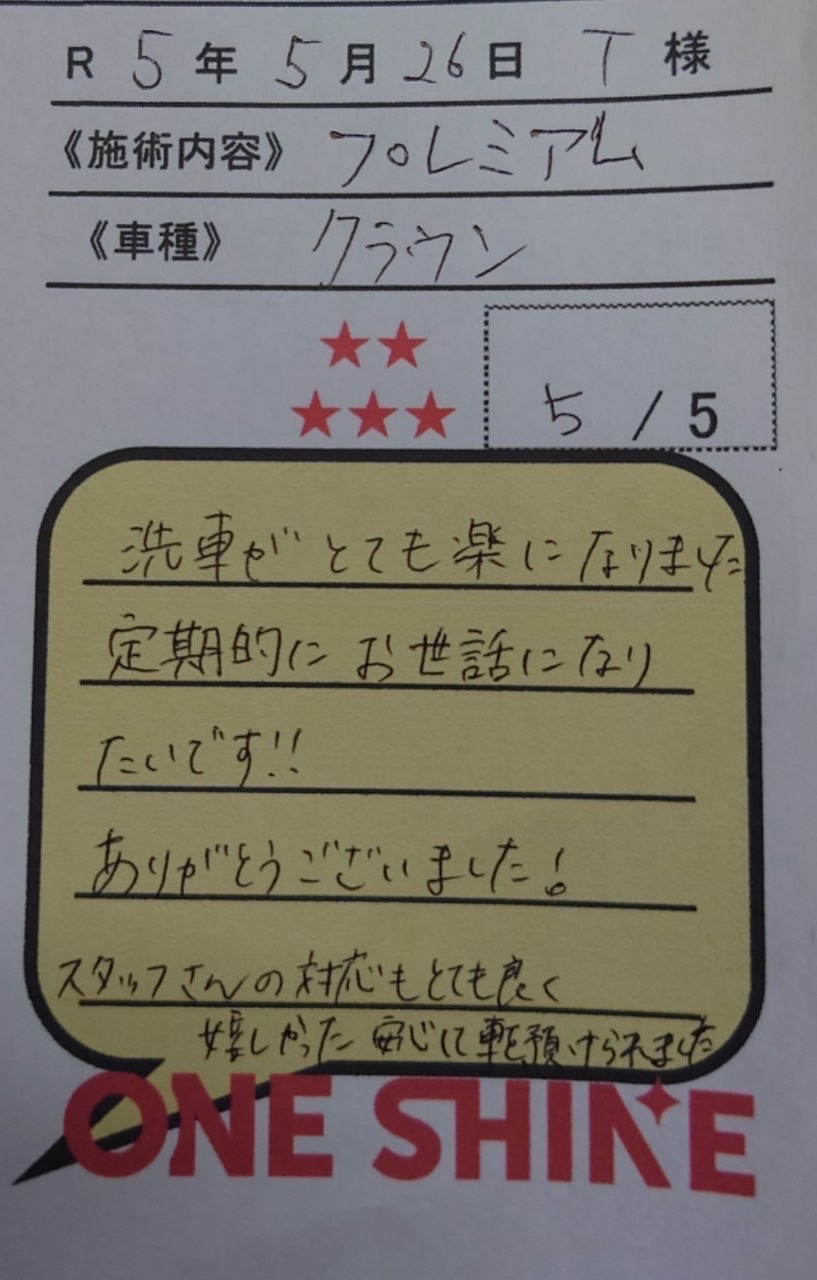 R 5年 5月 26日 T 様
《施術内容》 プレミアム
《車種》 クラウン
★★
★★★ 5 / 5
洗車がとても楽になりました
定期的にお世話になり
たいです!!
ありがとうございました!
スタッフさんの対応もとても良く
嬉しかった 安心して車を預けられました
ONE SHINE